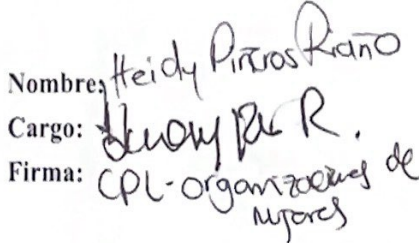 Nombre: Heidy Piñeros Riaño
Cargo:
Firma: CPL-organizaciones de
mujeres